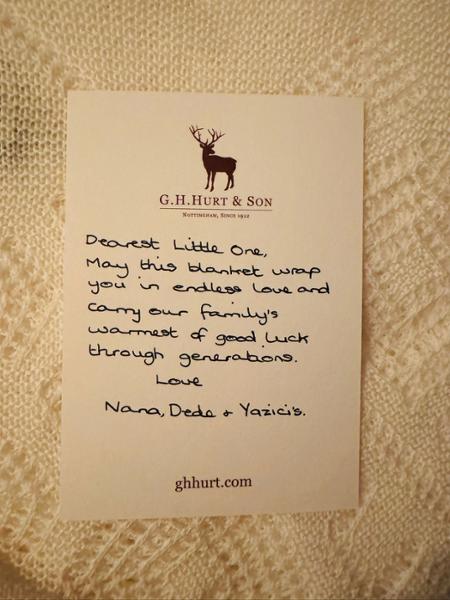 G.H.Hurt & Son
Nottingham, Since 1912
Dearest Little One,
May this blanket wrap
you in endless love and
carry our family's
warmest of good luck
through generations.
Love
Nana, Dede & Yazici's.
ghhurt.com